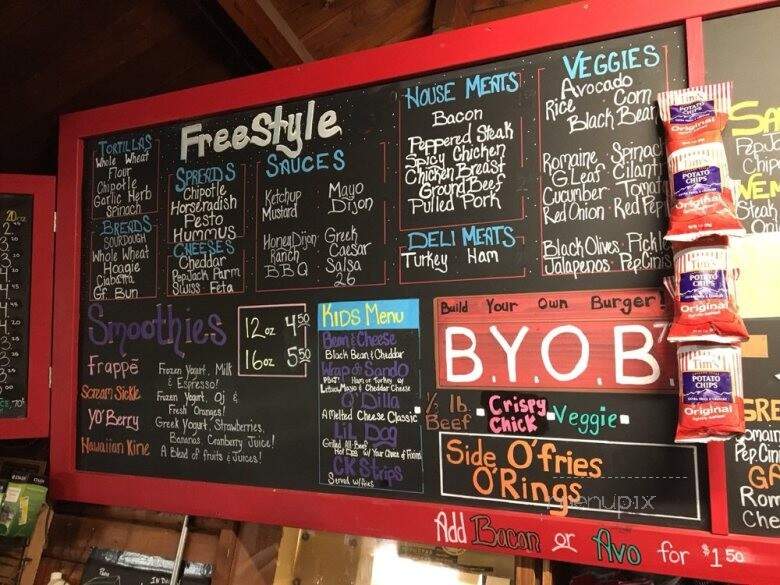 FreeStyle
TORTILLAS
Whole Wheat
Flour
Chipotle
Garlic Herb
Spinach
BREADS
SOURDOUGH
Whole Wheat
Hoagie
Ciabatta
Gf. Bun
SPREADS
Chipotle
Horseradish
Pesto
Hummus
CHEESES
Cheddar
PepJack Parm
Swiss Feta
SAUCES
Ketchup Mayo
Mustard Dijon
Honey Dijon Greek
Ranch Caesar
B.B.Q Salsa
26
HOUSE MEATS
Bacon
Peppered Steak
Spicy Chicken
Chicken Breast
Ground Beef
Pulled Pork
DELI MEATS
Turkey Ham
VEGGIES
Avocado
Rice Corn
Black Bean
Romaine Spinac
G Leaf Cilant
Cucumber Tomat
Red Onion Red Pep
Black Olives Pickl
Jalapenos Pep Cinis
Smoothies
12oz 4.50
16oz 5.50
Frappé
Frozen Yogurt, Milk
& Espresso!
Scream Sickle
Frozen Yogurt, Oj &
Fresh Oranges!
YO'Berry
Greek Yogurt, Strawberries,
Bananas Cranberry Juice!
Hawaiian Kine
A Blend of fruits & Juices!
KIDS Menu
Bean & Cheese
Black Bean & Cheddar
Wrap & Sando
PB&J, Ham or Turkey w/
Lettuce, Mayo & Cheddar Cheese
O' Dilla
A Melted Cheese Classic
Lil Dog
Grilled All Beef
Hot Dog w/ Your Choice of
CK Strips
Served w/fries
Build Your Own Burger!
B.Y.O.B
1/3 lb. Beef
Crispy Chick
Veggie
Side O'fries
O'Rings
Add Bacon or Avo for $1.50
Tim's
POTATO
CHIPS
Original
Tim's
POTATO
CHIPS
Original
POTATO
CHIPS
Original
Tim's
POTATO
CHIPS
Original
menupix